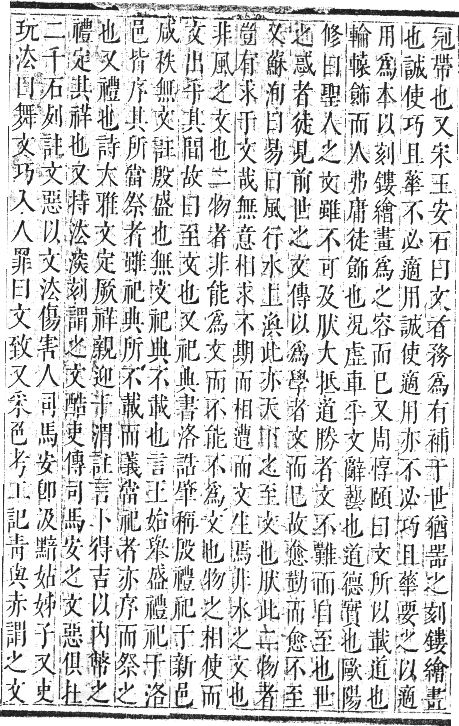 冠帶也又宋王安石曰文者務爲有補于世猶器之刻鏤繪畫
也誠使巧且華不必適用誠使適用亦不必巧且華要之以適
用爲本以刻鏤繪畫爲之容而已又周惇頤曰文所以載道也
輪轅飾而人弗庸徒飾也況虛車乎文辭藝也道德實也歐陽
修曰聖人之文雖不可及肰大抵道勝者文不難而自至也世
之惑者徒見前世之文傳以爲學者文而已故愈勤而愈不至
又蘇洵曰易曰風行水上渙此亦天下之至文也肰此二物者
豈有求于文哉無意相求不期而相遭而文生焉非水之文也
非風之文也二物者非能爲文而不能不爲文也物之相使而
文出乎其間故曰至文也又祀典書洛誥肇稱殷禮祀于新邑
咸秩無文註殷盛也無文祀典不載也言王始舉盛禮祀于洛
邑皆序其所當祭者雖祀典所不載而義當祀者亦序而祭之
也又禮也詩大雅文定厥祥親迎于渭註言卜得吉以內幣之
禮定其祥也又持法深刻謂之文酷吏傳司馬安之文惡俱在
二千石列註文惡以文法傷害人司馬安卽汲黯姑姊子又史
玩法曰舞文巧入人罪曰文致又采色考工記靑與赤謂之文